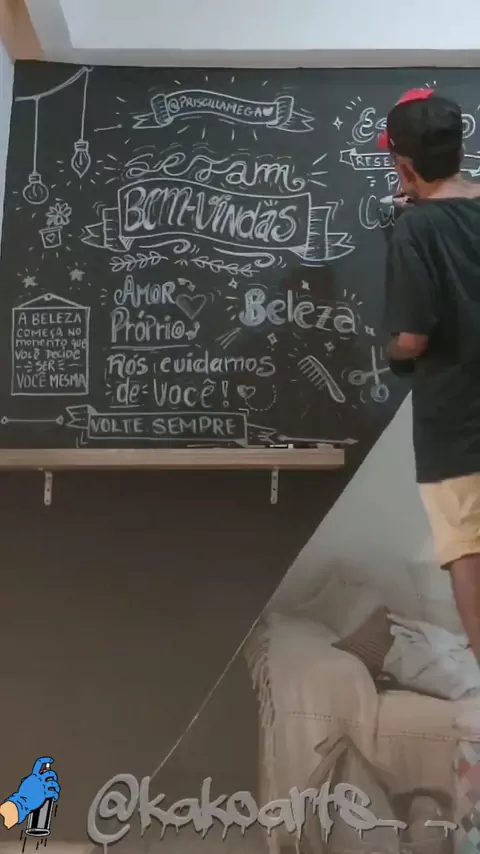 @PRISCILLAMEGA
Sejam
BEM-VINDAS
AMOR
PRÓPRIO
Beleza
A BELEZA
COMEÇA NO
MOMENTO QUE
VOCÊ DECIDE
SER
VOCÊ MESMA
Nós cuidamos
de Você!
VOLTE SEMPRE
@kakoarts__